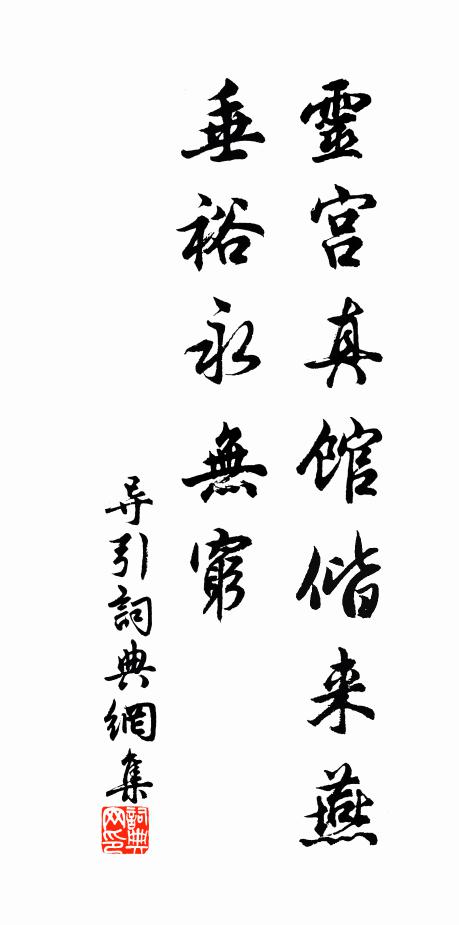 靈宫真館偕来燕
垂裕永無窮
导引詞典網集
詞典网印